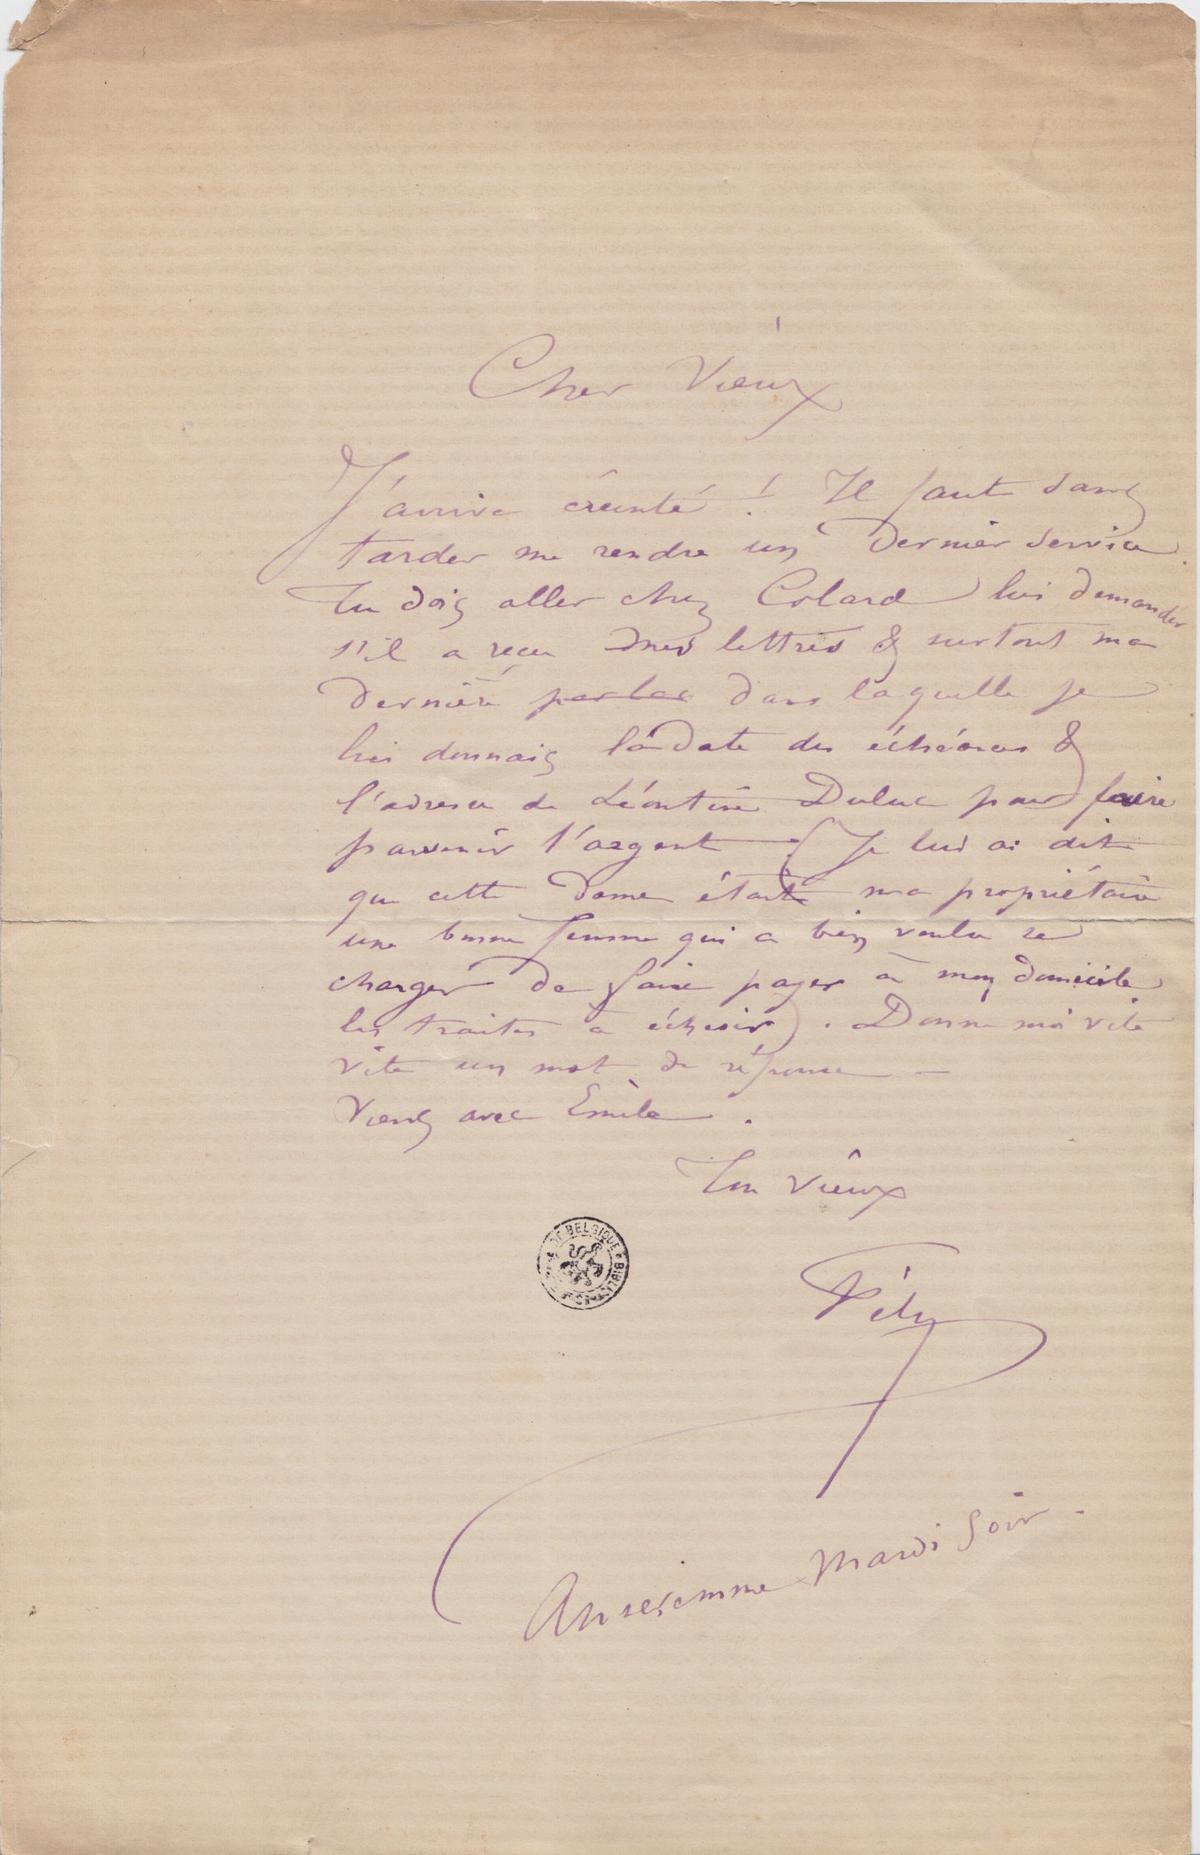 Cher Vieux
J'arrive éreinté ! Il faut sans
tarder me rendre un dernier service.
Tu dois aller chez Colard lui demander
s'il a reçu mes lettres & surtout ma
dernière par la dans laquelle je
lui donnais la date des échéances &
l'adresse de Léontine Duluc pour faire
parvenir l'argent – (Je lui ai dit
que cette dame était ma propriétaire
une bonne femme qui a bien voulu se
charger de faire payer à mon domicile
les traites à échoir). Donne moi vite
vite un mot de réponse –
Viens avec Emile.
Ton vieux
Fély
Anseremme Mardi Soir.
DE BELGIQUE